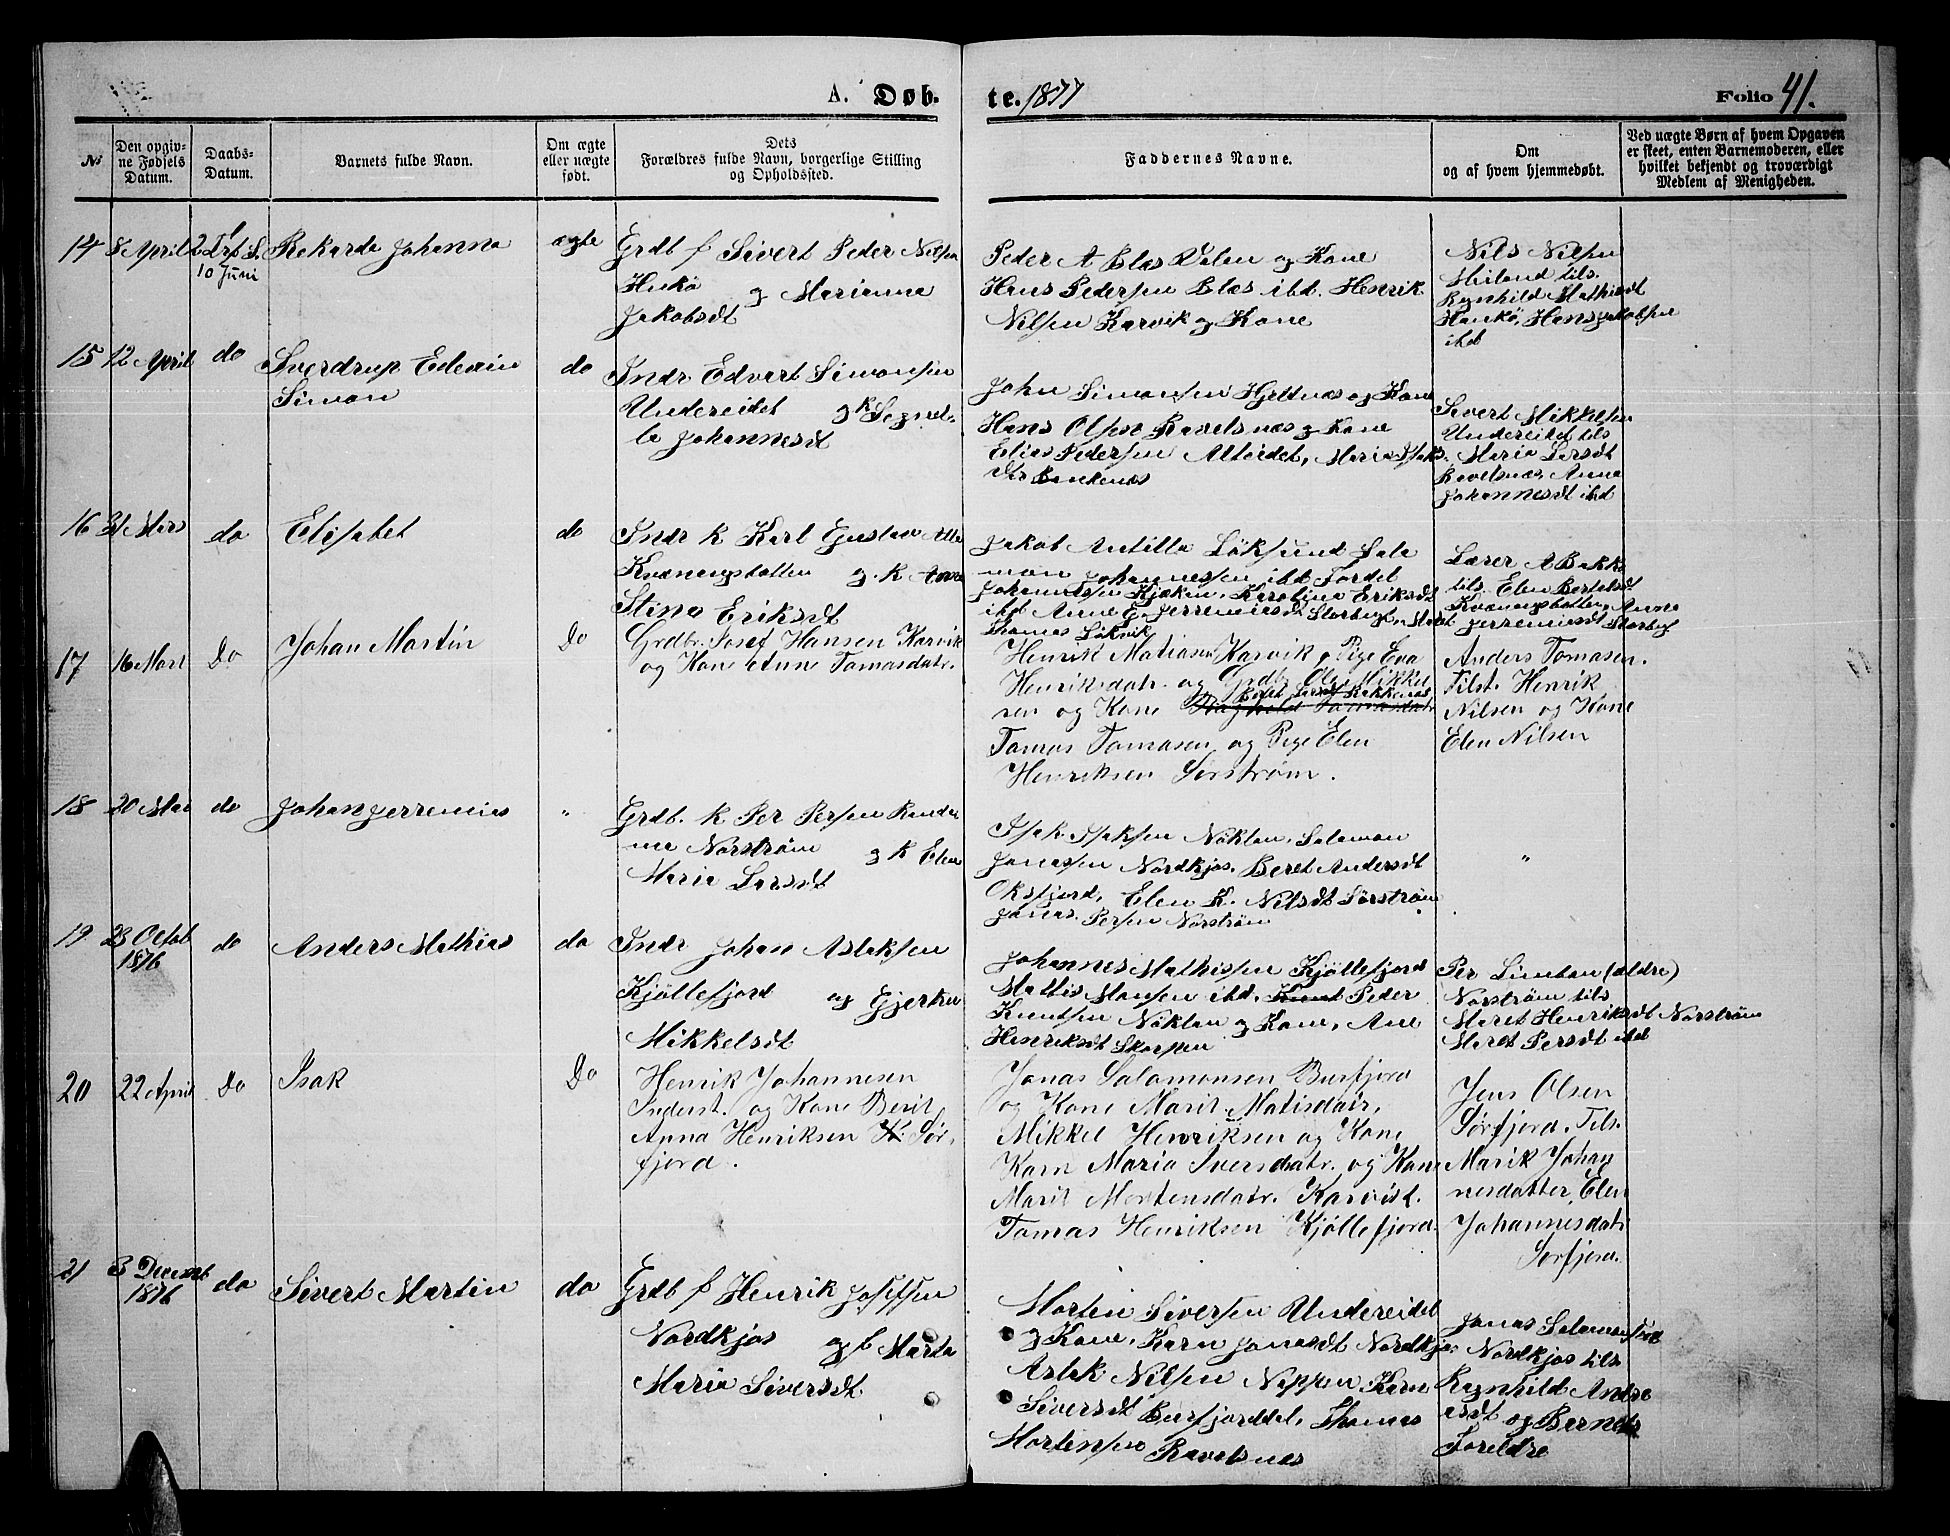 A. Døb. te. 1877
Folio 41.
№
Den opgiv-
ne Fødsels
Datum.
Daabs-
Datum.
Barnets fulde Navn.
Om ægte
eller uægte
født.
Dets
Forældres fulde Navn, borgerlige Stilling
og Opholdssted.
Faddernes Navne.
Om
og af hvem hjemmedøbt.
Ved uægte Børn af hvem Opgaven
er skeet, enten Barnemoderen, eller
hvilket bekjendt og troværdigt
Medlem af Menigheden.
14
8 April
10 Juni
Rekarda Johanna
ægte
Grdb f Sivert Peder Nilsen
og Marianna
Jakobsdt
Peder A Blæs Valen og Kone
Hans Pedersen Blæs ibd. Henrik
Nilsen Karvik og Kone
Nils Nilsen
Meiland tils.
Ragnhild Mathisdt
Haukø, Hans Jakobsen
ibd
15
12 April
do
Sverdrup Edevin
Simon
do
Indr Edvert Simonsen
Undereidet
Johannesdt
John Simonsen Hjeltnæs og Kone
Hans Olsen Ravelsnæs og Kone
Elias Pedersen Alteidet, Maria Isaks-
dtr
Sivert Mikkelsen
Undereidet tils
Maria Larsdt
Ravelsnæs, Anna
Johannesdt ibd
16
31 Mars
do
Elisabet
do
Indr k Karl Gustav
Kvænangsbotten og k Anna
Stina Eriksdt
Jakob Antilla Løksund Sala
mon Johannessen ibd Fordel
Johannessen Kjækan, Karoline Eriksdt
ibd Anne G. Jerremiasdt Storbugt,
Thomas Løkvik
Lærer A Bakke
tils. Elen Bertelsdt
Kvænangsbotten, Anna
Jerremiasdt Storbugt
17
16 Mart
Do
Johan Martin
Do
Grdbr. Josef Hansen Karvik
og Kone Ane Tomasdatr.
Henrik Matiasen Karvik, Pige Eva
Henriksdatr. og Grdb. Ole Mikkel
sen og Kone
Tomas Tomasen og Pige Elen
Henriksen Sørstrøm.
Anders Tomasen.
Tilst. Henrik
Nilsen og Kone
Elen Nilsen
18
20 Mai
do
Johan Jerremias
"
Grdb. k Per Persen
Norstrøm og k Elen
Maria Larsdt
Isak Isaksen Nøklan, Salamon
Jonassen Nordkjos, Beret Andersdt
Oksfjord, Elen K. Nilsdt Sørstrøm
Jonas Persen Norstrøm
"
19.
23 Octob
1876
do
Anders Mathias
do
Indr Johan Aslaksen
Kjøllefjord og Gjerken
Mikkelsdt
Johannes Mathissen Kjøllefjord
Mattis Hansen ibd. Knut Peder
Knutsen Nøklan og Kone, Ane
Henriksdt Skorpen
Per Simban (ældre)
Norstrøm tils
Maret Henriksdt Norstrøm
Maret Persdt ibd
20
22 April
Do
Isak
Do
Henrik Johannesen
Inderst. og Kone Berit
Anna Henriksen K. Sør-
fjord.
Jonas Salamonsen Burfjord
og Kone Marit Matisdatr,
Mikkel Henriksen og Kone
Karn Maria Iversdatr. og Kone
Marit Mortensdatr. Karvik.
Tomas Henriksen Kjøllefjord.
Jens Olsen
Sørfjord. Tils.
Marik Johan
nesdatter, Elen
Johannesdatr
Sørfjord.
21
3 Decemt.
1876
do
Sivert Martin
do
Grdb f Henrik Josefsen
Nordkjos og f Marta
Maria Siversdt
Morten Siversen Undereidet
og Kone, Karn Jonasdt Nordkjos
Aslak Nilsen Nippen, Karn
Siversdt Burfjorddal, Thomas
Mortensen Ravelsnæs
Jonas Salamonsen
Nordkjos tils
Ragnhild Andre
asdt og Barnets
Foreldre